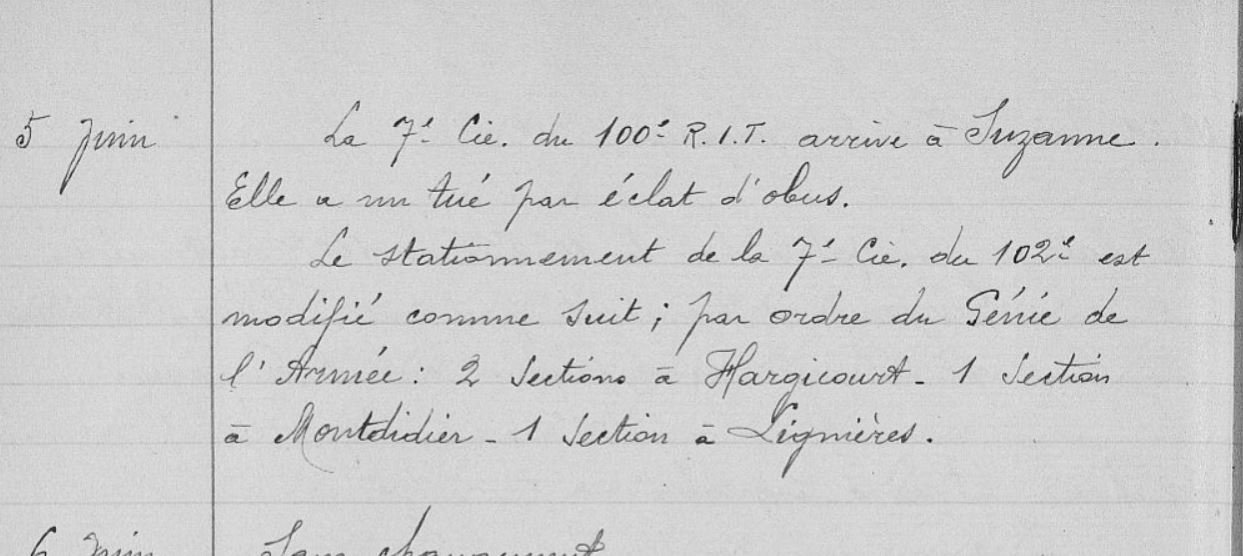 5 Juin La 7e Cie. du 100e R.I.T. arrive à Suzanne.
Elle a un tué par éclat d'obus.
Le stationnement de la 7e Cie. du 102e est
modifié comme suit ; par ordre du Génie de
l'Armée : 2 Sections à Hargicourt - 1 Section
à Montdidier - 1 Section à Lignières.
6 Juin Sans changement